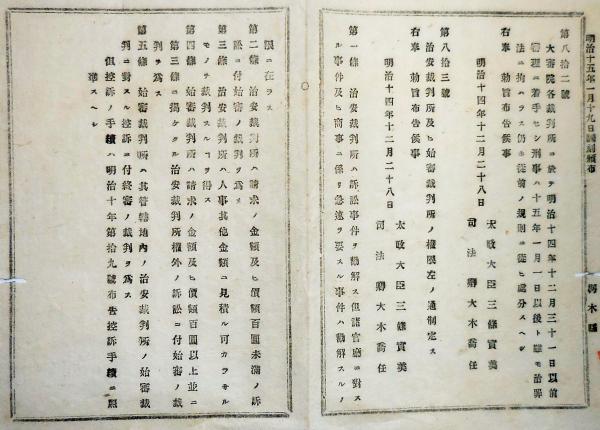 明治十五年一月十九日飜刻頒布
栃木縣
第八拾二號
大審院各裁判所ニ於テ明治十四年十二月三十一日以前
審理ニ着手セシ刑事ハ十五年一月一日以後ト雖モ治罪
法ニ拘ハラス仍ホ從前ノ規則ニ從ヒ處分スヘシ
右奉 勅旨布告候事
明治十四年十二月二十八日
太政大臣三條實美
司法卿大木喬任
第八拾三號
治安裁判所及ヒ始審裁判所ノ權限左ノ通制定ス
右奉 勅旨布告候事
明治十四年十二月二十八日
太政大臣三條實美
司法卿大木喬任
第一條 治安裁判所ハ訴訟事件ヲ勸解ス但諸官廳ニ對ス
ル事件及ヒ商事ニ係リ急速ヲ要スル事件ハ勸解スルノ
限ニ在ラス
第二條 治安裁判所ハ請求ノ金額及ヒ價額百圓未滿ノ訴
訟ニ付始審ノ裁判ヲ爲ス
第三條 治安裁判所ハ人事其他金額ニ見積ル可カラサル
モノヲ裁判スルヿヲ得ス
第四條 始審裁判所ハ請求ノ金額及ヒ價額百圓以上並ニ
第三條ニ揭ケタル治安裁判所權外ノ訴訟ニ付始審ノ裁
判ヲ爲ス
第五條 始審裁判所ハ其管轄地內ノ治安裁判所ノ始審裁
判ニ對スル控訴ニ付終審ノ裁判ヲ爲ス
但控訴ノ手續ハ明治十年第拾九號布告控訴手續ニ照
準スヘシ